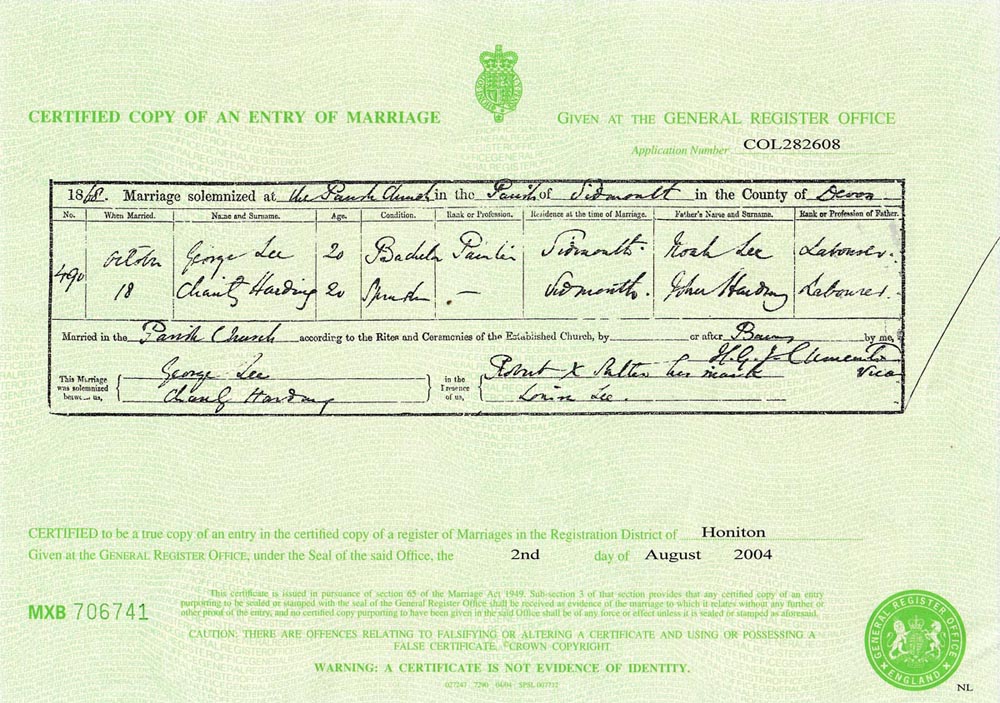 CERTIFIED COPY OF AN ENTRY OF MARRIAGE
GIVEN AT THE GENERAL REGISTER OFFICE
Application Number COL282608
1868. Marriage solemnized at the Parish Church in the Parish of Sidmouth in the County of Devon
No. When Married. Name and Surname. Age. Condition. Rank or Profession. Residence at the time of Marriage. Father's Name and Surname. Rank or Profession of Father.
490 October George Lee 20 Bachelor Painter Sidmouth. Noah Lee Labourer.
18 Charity Harding 20 Spinster — Sidmouth. John Harding Labourer.
Married in the Parish Church according to the Rites and Ceremonies of the Established Church, by or after Banns by me,
H.G.J. Clements Vicar
This Marriage was solemnized between us, George Lee
Charity Harding
in the Presence of us, Robert X Salter his mark
Louisa Lee.
CERTIFIED to be a true copy of an entry in the certified copy of a register of Marriages in the Registration District of Honiton
Given at the GENERAL REGISTER OFFICE, under the Seal of the said Office, the 2nd day of August 2004
MXB 706741
This certificate is issued in pursuance of section 65 of the Marriage Act 1949. Sub-section 3 of that section provides that any certified copy of an entry
purporting to be sealed or stamped with the seal of the General Register Office shall be received as evidence of the marriage to which it relates without any further or
other proof of the entry, and no certified copy purporting to have been given in the said Office shall be of any force or effect unless it is sealed or stamped as aforesaid.
CAUTION: THERE ARE OFFENCES RELATING TO FALSIFYING OR ALTERING A CERTIFICATE AND USING OR POSSESSING A
FALSE CERTIFICATE. ©CROWN COPYRIGHT
WARNING: A CERTIFICATE IS NOT EVIDENCE OF IDENTITY.
GENERAL REGISTER OFFICE
ENGLAND
NL